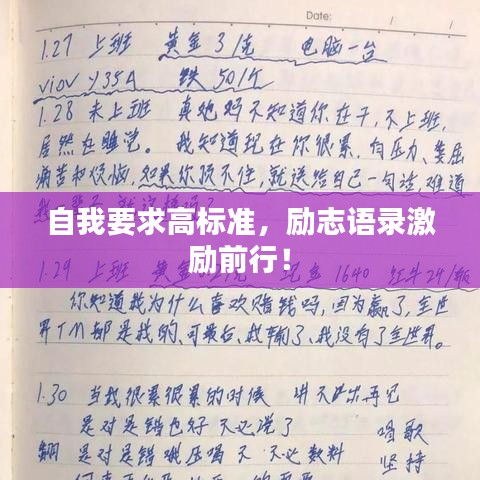 Date:
1.27 上班 黄金31克 电脑一台
viov y35A 铁501斤
1.28 未上班 真他妈不知道你在干,不上班,
居然在睡觉。我知道现在你很累,有压力、委屈
痛苦和烦恼,如果你顶不住,就送给自己一句话,难道
自我要求高标准，励志语录激
励前行！
1.29 上班 黄金 1640 红牛24/瓶
你知道我为什么喜欢赌钱吗,因为赢了,全世
界TM都是我的、可最后、我输了、我没有了全世界。
1.30 当我很累很累的时候
是对是错也好 不必说了 唱歌
是对是错 喝 不 不必 坚持